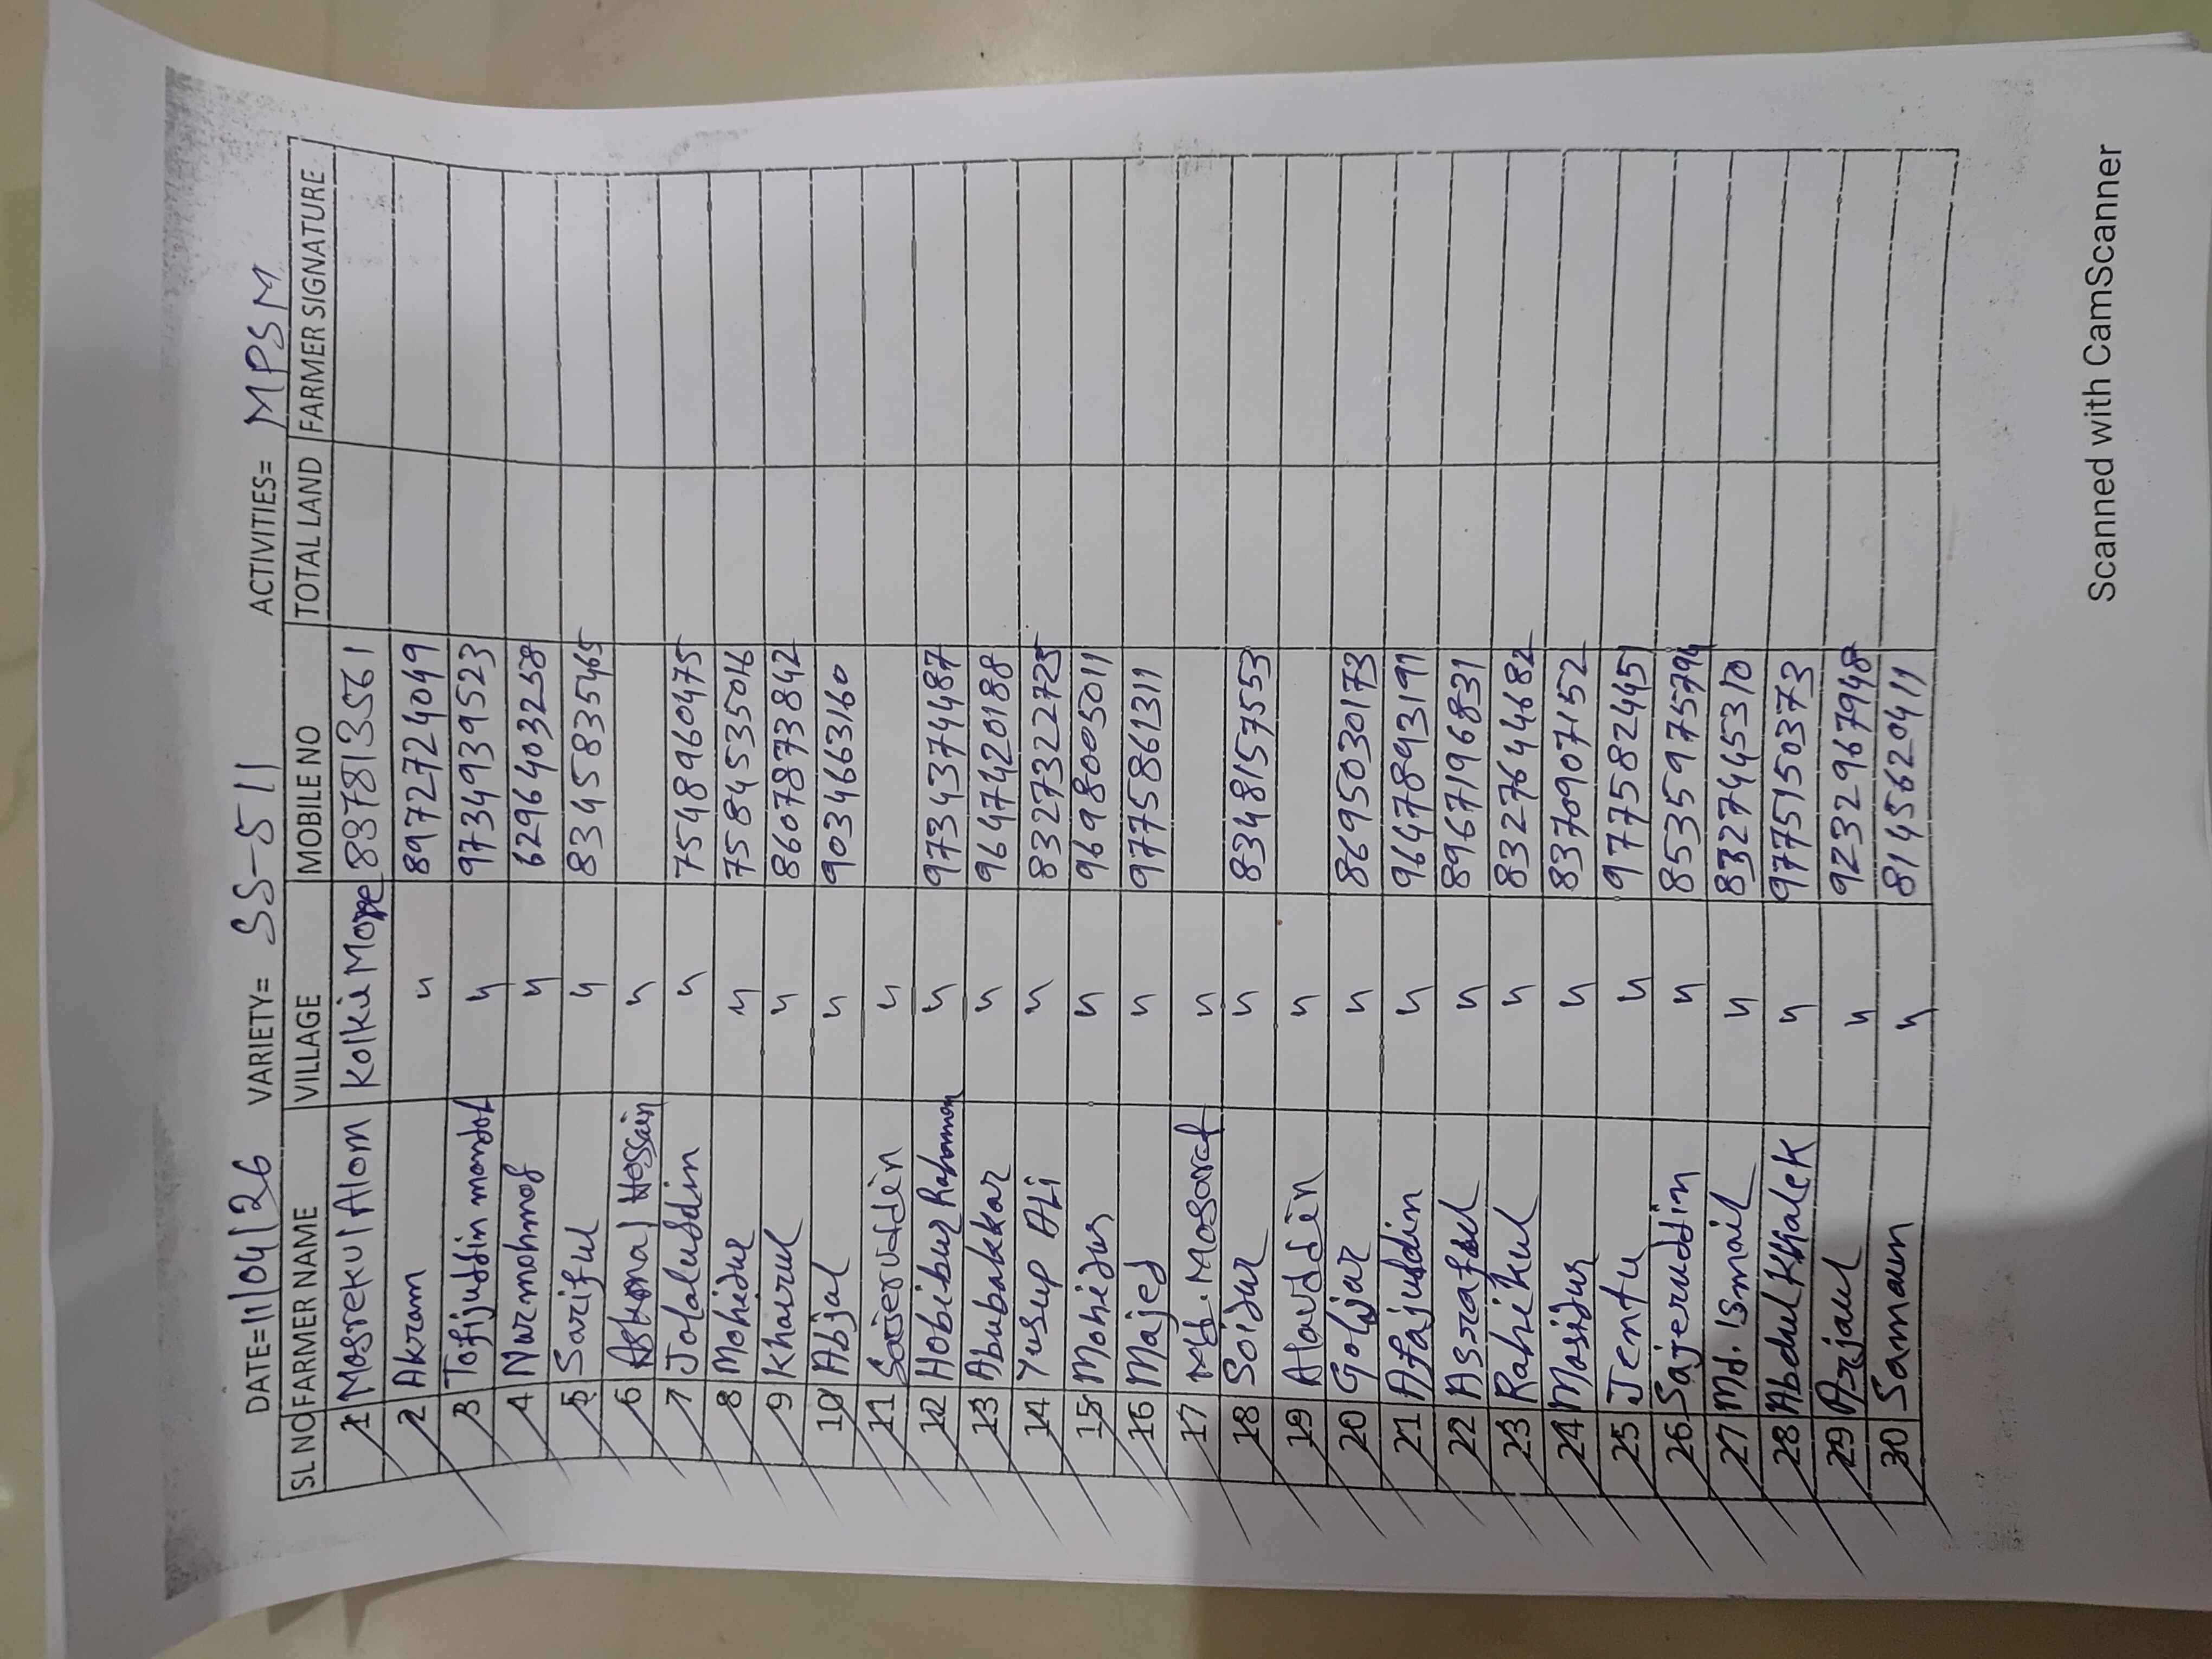 DATE=11/04/26 VARIETY= SS-511 ACTIVITIES= MPSM
SL NO FARMER NAME VILLAGE MOBILE NO TOTAL LAND FARMER SIGNATURE
1 Mosrekul Alom Kolkie More 8378135561
2 Akram " 8972724049
3 Tofijuddin mondol " 9734939523
4 Nurmohmod " 6296403258
5 Sariful " 8345835465
6 Hossain "
7 Jolaluddin " 7548960475
8 Mohidur " 7584535016
9 Kharul " 8607873842
10 Abjal " 9034663160
11 Sojeruddin "
12 Hobibur Rahaman " 9734374487
13 Abubakkar " 9647420188
14 Yusup Ali " 8327322725
15 Mohidur " 9698005011
16 Majed " 9775861311
17 Md. Mosaraf "
18 Soidur " 8348157553
19 Alauddin "
20 Goljar " 8695030173
21 Afajuddin " 9647893191
22 Asraful " 8967196831
23 Rahikul " 8327644682
24 Mosidur " 8370907152
25 Jentu " 977582445
26 Sajeruddin " 8535975794
27 Md. Ismail " 8327445310
28 Abdul Khalek " 9775150373
29 Arjaul " 9232967948
30 Samaun " 8145620411
Scanned with CamScanner